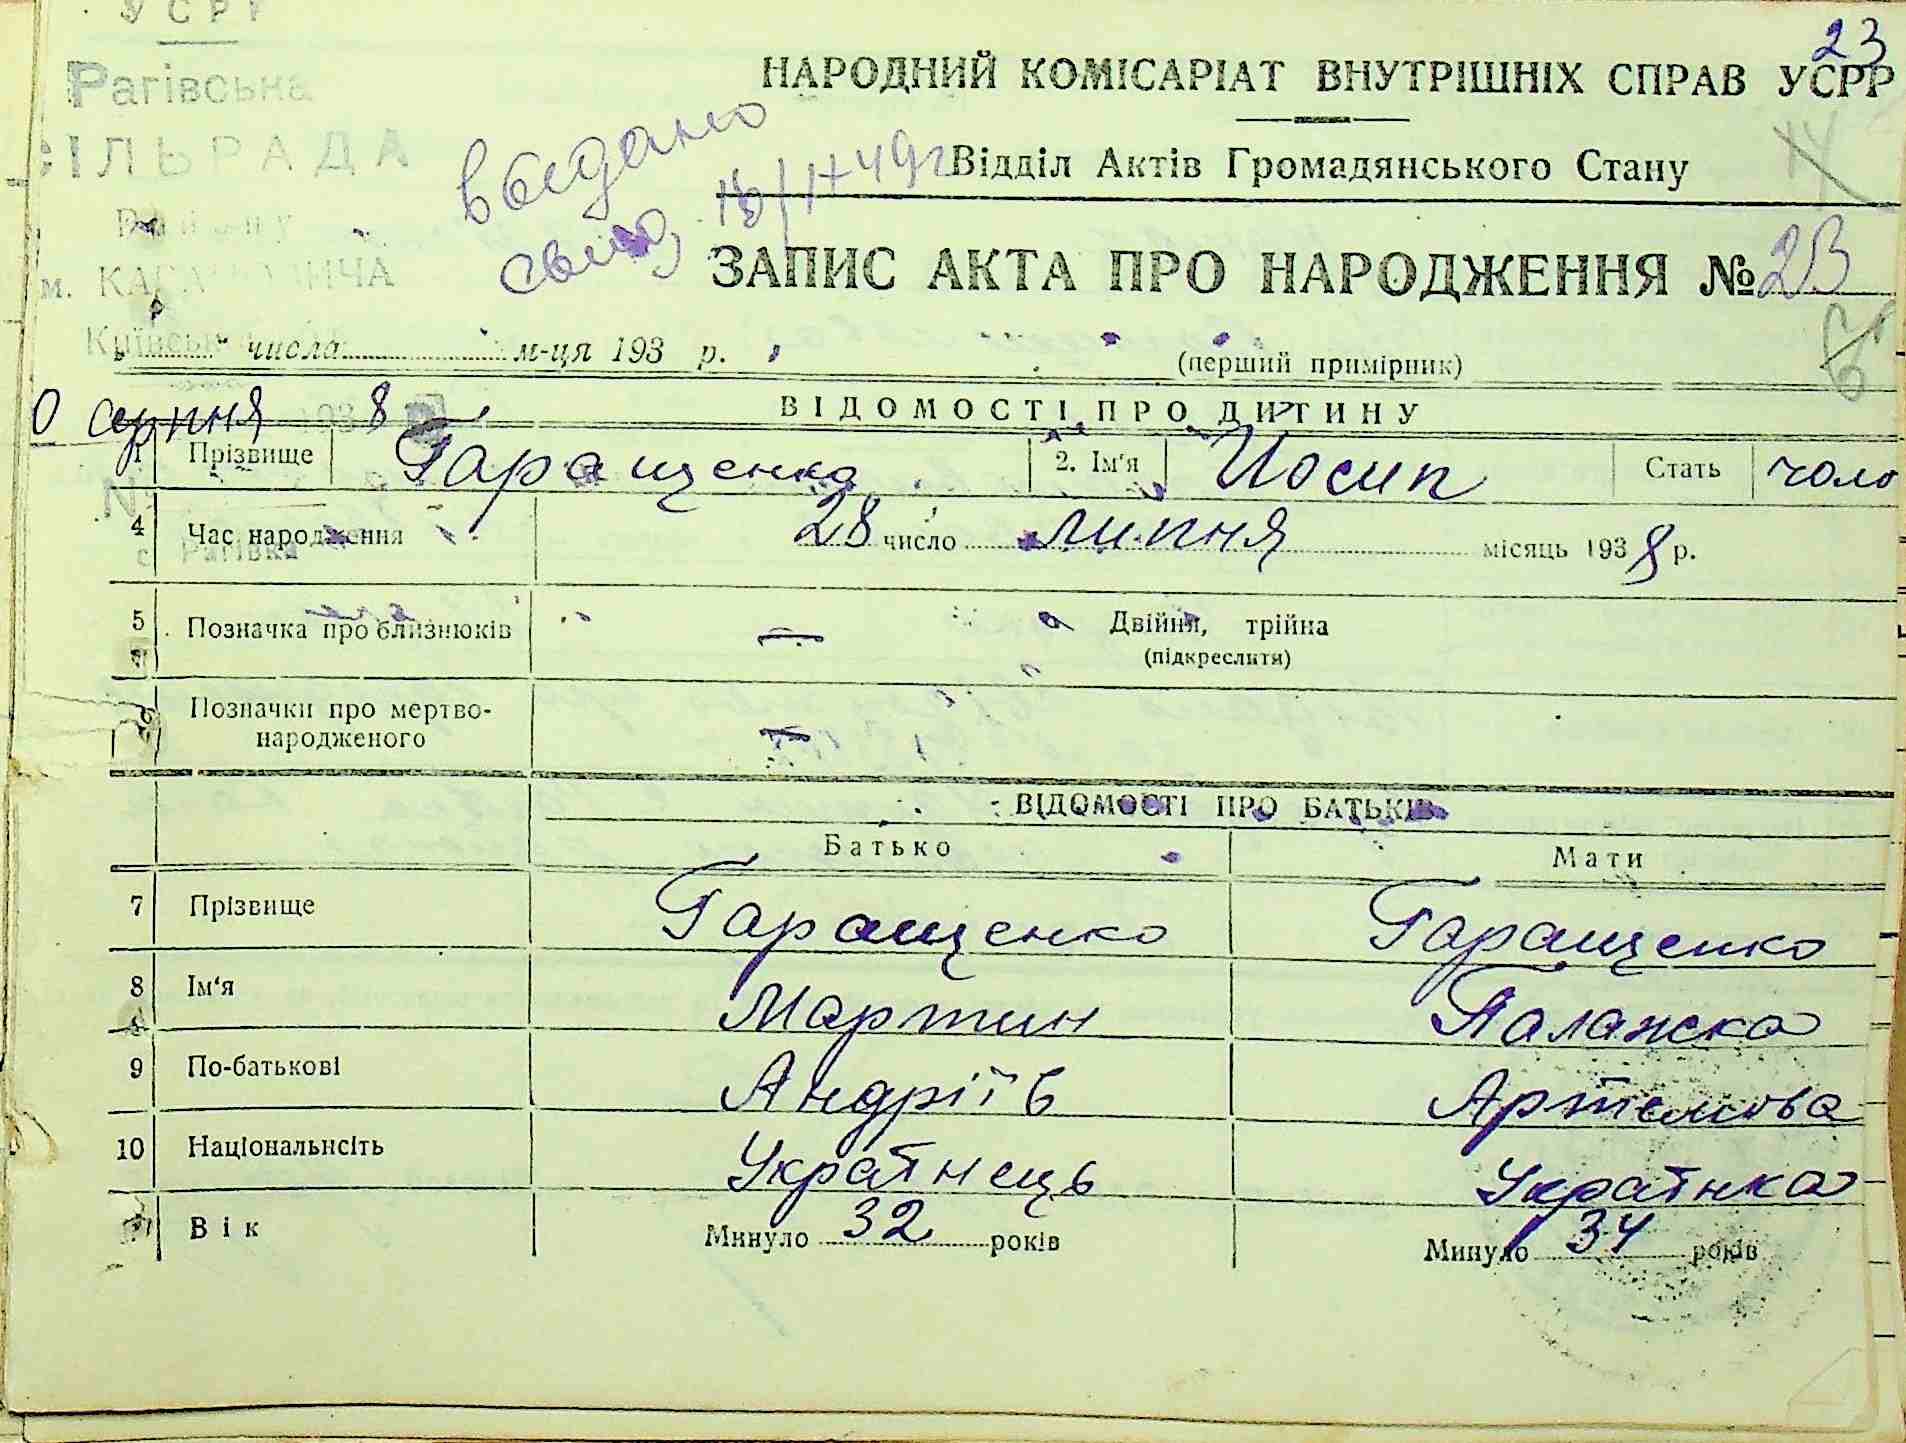 УСРР
Рагівська
СІЛЬРАДА
Району
м. КАГАНОВИЧА
Київської
23
НАРОДНИЙ КОМІСАРІАТ ВНУТРІШНІХ СПРАВ УСРР
14
Відділ Актів Громадянського Стану
выдано
ЗАПИС АКТА ПРО НАРОДЖЕННЯ № 23
числа м-ця 193 р.
(перший примірник)
0 серпня 1938
ВІДОМОСТІ ПРО ДИТИНУ
1 Прізвище Гаращенко 2. Ім'я Йосип Стать чоло
№
4 Час народження 28 число липня місяць 1938 р.
с. Рагівка
5 Позначка про близнюків — Двійня, трійна
(підкреслити)
Позначки про мертво-
народженого —
ВІДОМОСТІ ПРО БАТЬКІВ
Батько Мати
7 Прізвище Гаращенко Гаращенко
8 Ім'я Мартин Палажка
9 По-батькові Андріїв Артемова
10 Національнсіть Українець Українка
Вік Минуло 32 років Минуло 34 років